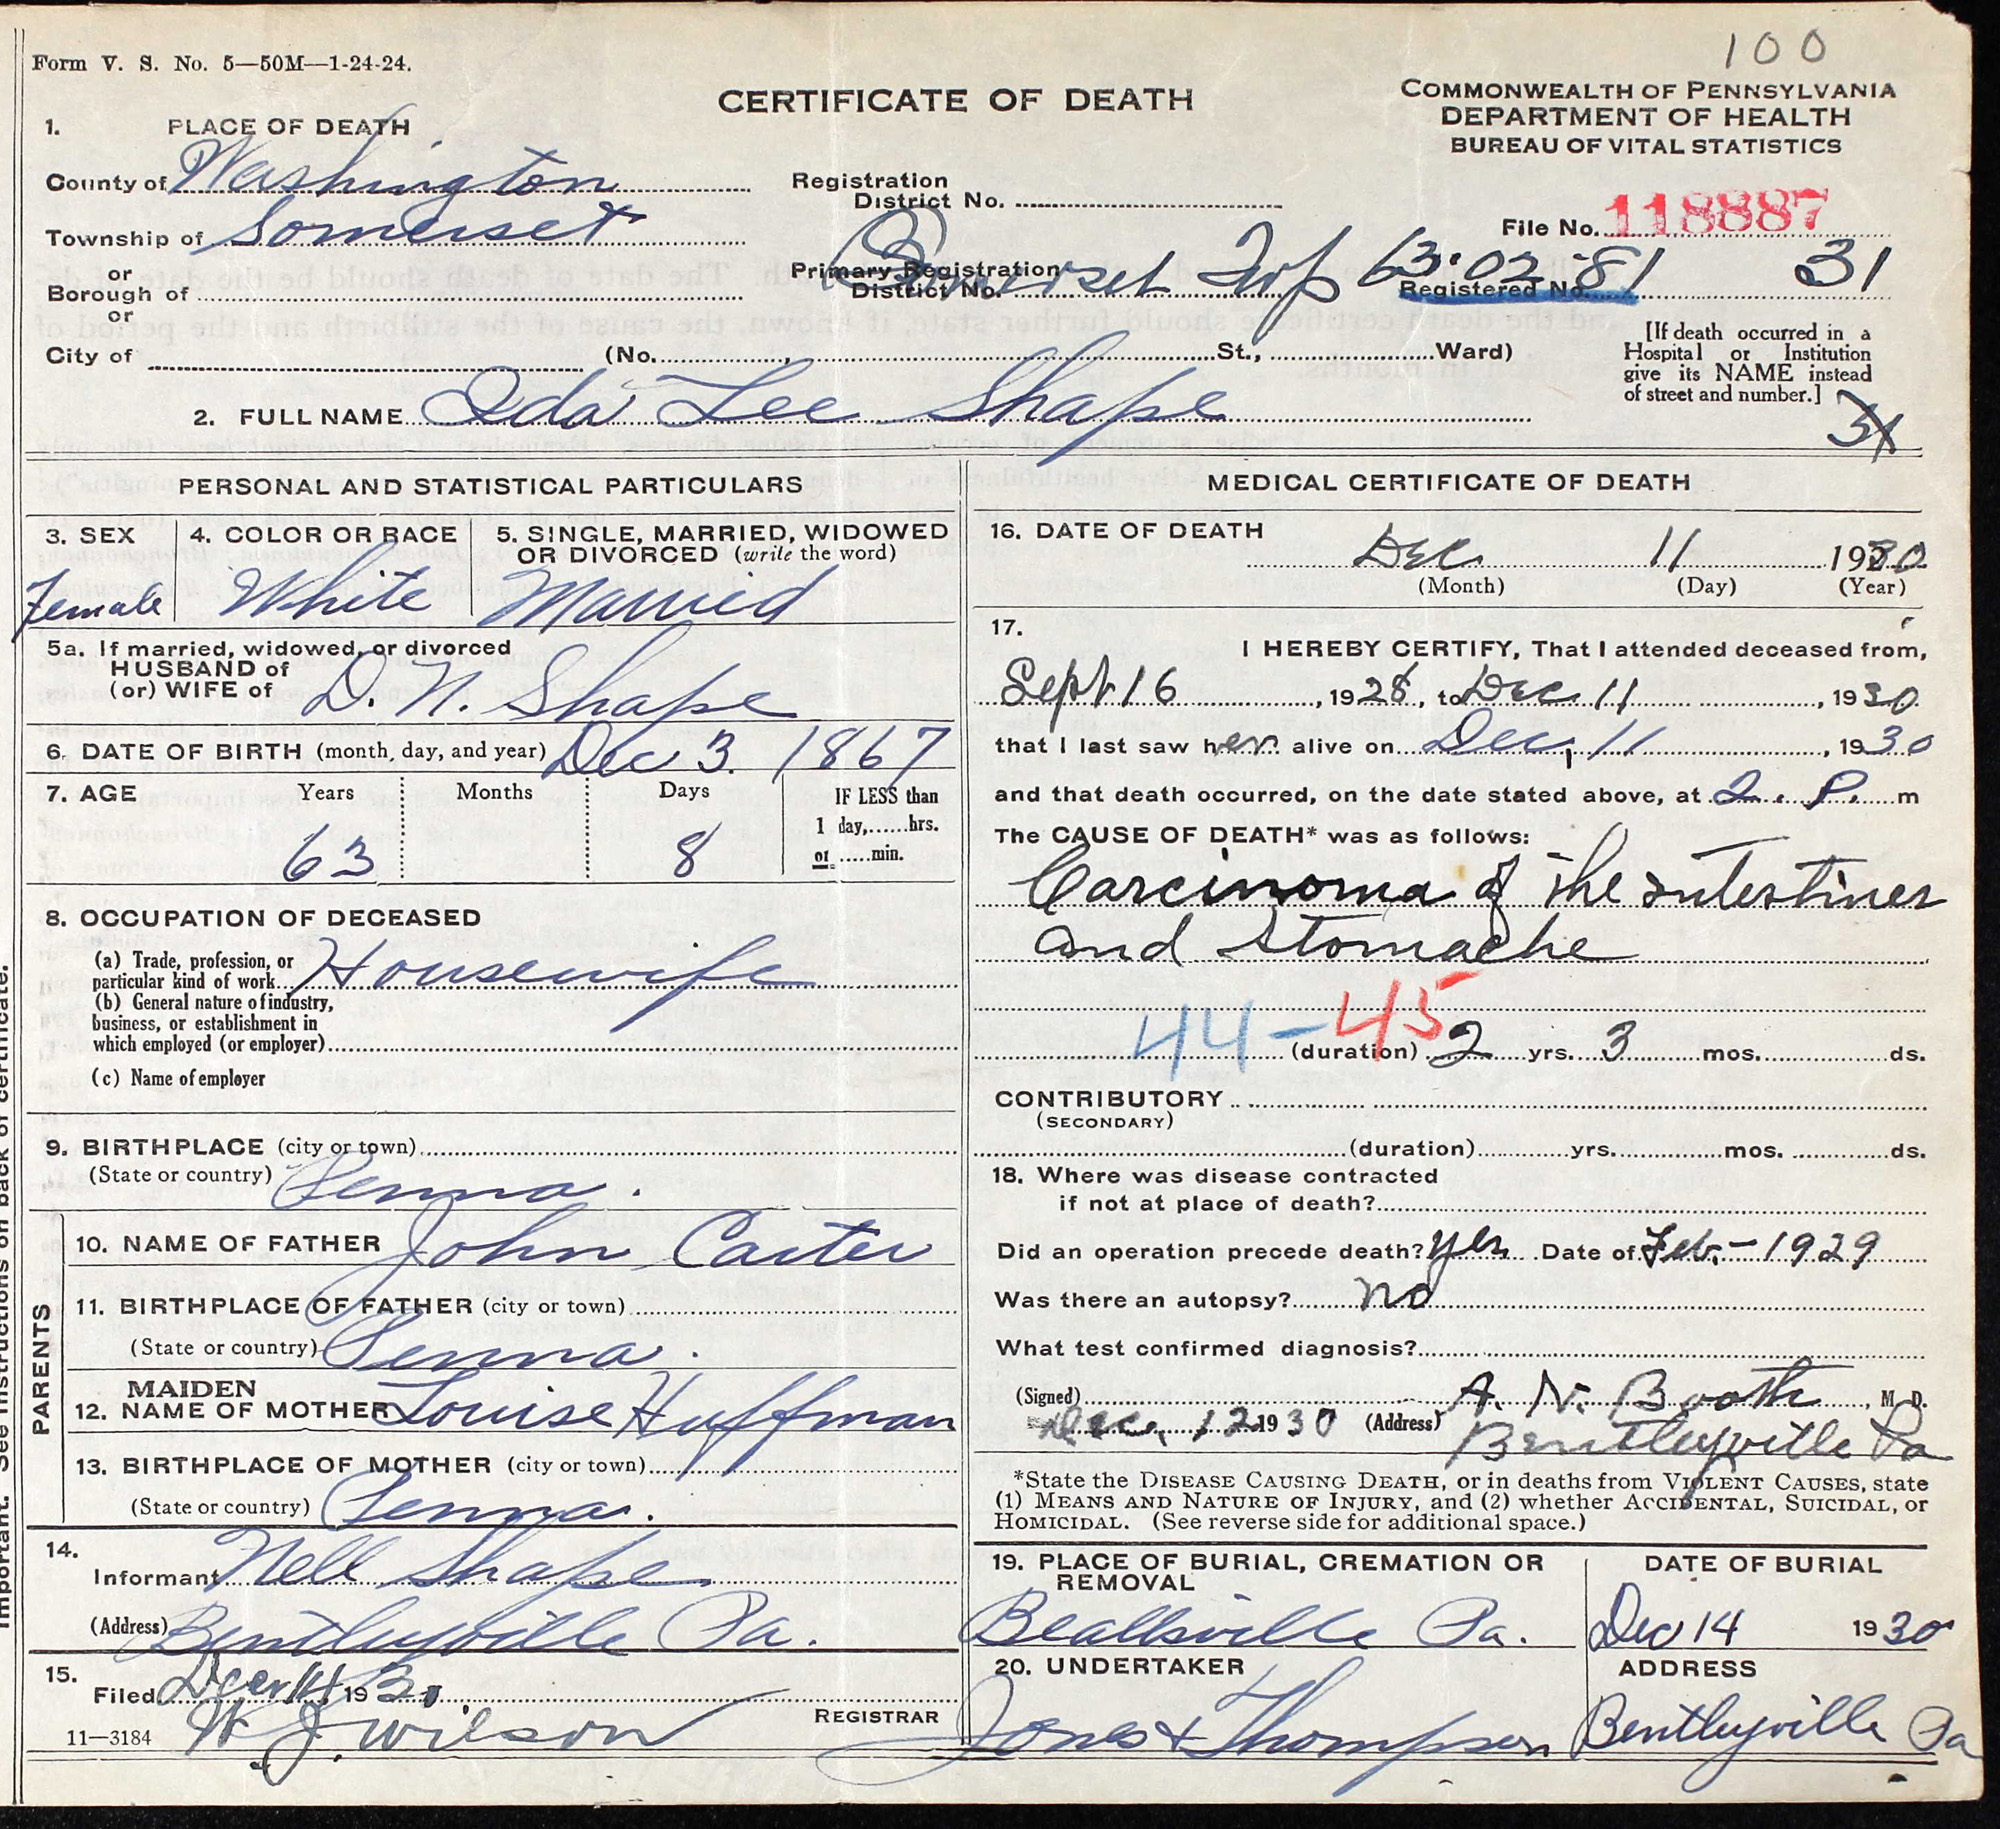 100
Form V. S. No. 5—50M—1-24-24.
CERTIFICATE OF DEATH
COMMONWEALTH OF PENNSYLVANIA
DEPARTMENT OF HEALTH
BUREAU OF VITAL STATISTICS
1. PLACE OF DEATH
County of Washington
Registration District No.
File No. 118887
Township of Somerset
or
Primary Registration District No. Somerset Twp 63-02-81
Registered No. 31
Borough of
or
City of (No. , St., Ward)
[If death occurred in a Hospital or Institution give its NAME instead of street and number.]
2. FULL NAME Ida Lee Shape
31
PERSONAL AND STATISTICAL PARTICULARS
3. SEX
Female
4. COLOR OR RACE
White
5. SINGLE, MARRIED, WIDOWED OR DIVORCED (write the word)
Married
5a. If married, widowed, or divorced
HUSBAND of
(or) WIFE of D. N. Shape
6. DATE OF BIRTH (month, day, and year) Dec 3. 1867
7. AGE Years Months Days IF LESS than
1 day,......hrs.
or .....min.
63 8
8. OCCUPATION OF DECEASED
(a) Trade, profession, or
particular kind of work Housewife
(b) General nature of industry,
business, or establishment in
which employed (or employer)
(c) Name of employer
9. BIRTHPLACE (city or town)
(State or country) Penna.
PARENTS
10. NAME OF FATHER John Carter
11. BIRTHPLACE OF FATHER (city or town)
(State or country) Penna.
12. MAIDEN NAME OF MOTHER Louise Huffman
13. BIRTHPLACE OF MOTHER (city or town)
(State or country) Penna.
14.
Informant Nell Shape
(Address) Bentleyville Pa.
15.
Filed Dec 14, 193
W. J. Wilson REGISTRAR
11—3184
MEDICAL CERTIFICATE OF DEATH
16. DATE OF DEATH
Dec 11 1930
(Month) (Day) (Year)
17.
I HEREBY CERTIFY, That I attended deceased from,
Sept 16, 1928, to Dec. 11, 1930
that I last saw her alive on Dec, 11, 1930
and that death occurred, on the date stated above, at 2. P. m
The CAUSE OF DEATH* was as follows:
Carcinoma of the intestines
and stomache
44-45
(duration) 2 yrs. 3 mos. ds.
CONTRIBUTORY
(SECONDARY)
(duration) yrs. mos. ds.
18. Where was disease contracted
if not at place of death?
Did an operation precede death? yes Date of Feb.-1929
Was there an autopsy? no
What test confirmed diagnosis?
(Signed) A. N. Booth, M. D.
Dec. 12 1930 (Address) Bentleyville Pa
*State the DISEASE CAUSING DEATH, or in deaths from VIOLENT CAUSES, state
(1) MEANS AND NATURE OF INJURY, and (2) whether ACCIDENTAL, SUICIDAL, or
HOMICIDAL. (See reverse side for additional space.)
19. PLACE OF BURIAL, CREMATION OR REMOVAL
Beallsville Pa.
DATE OF BURIAL
Dec 14 1930
20. UNDERTAKER
Jones & Thompson
ADDRESS
Bentleyville Pa
important. See instructions on back of certificate.